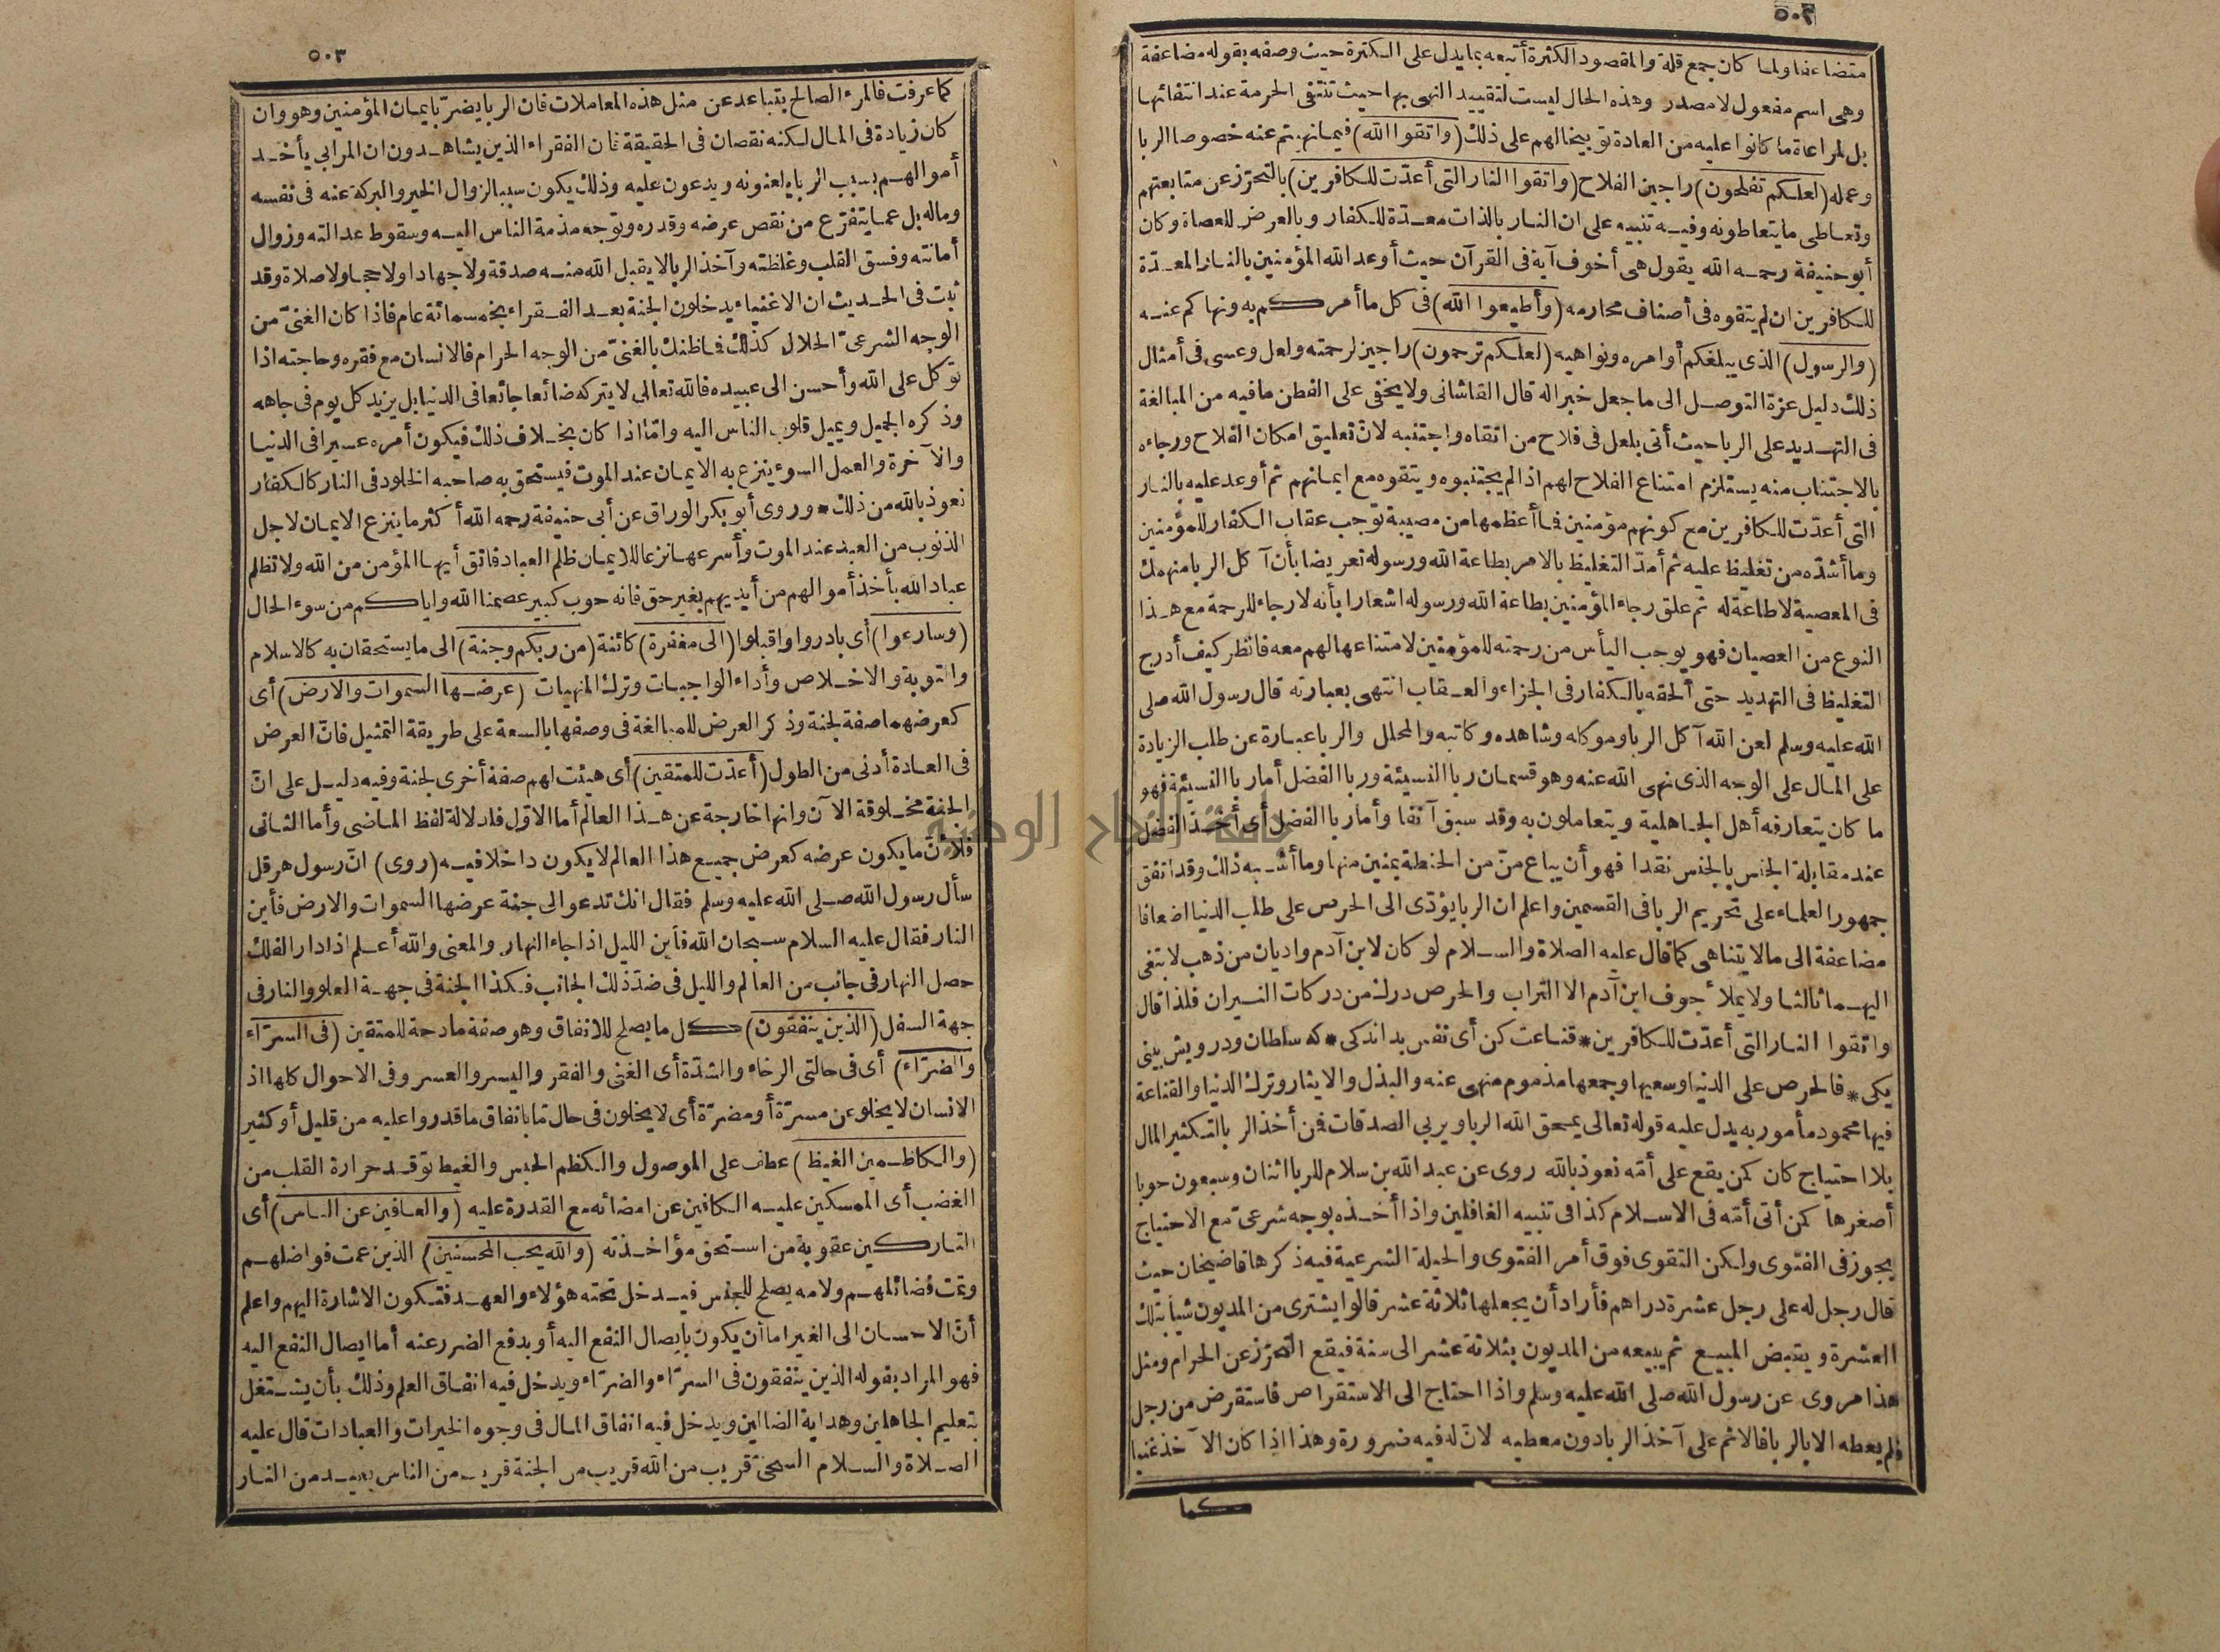 ٥٠٢
متضاعفا ولما كان جمع قلة والمقصود الكثرة أتبعه بما يدل على الكثرة حيث وصفه بقوله مضاعفة
وهى اسم مفعول لا مصدر وهذه الحال ليست لتقييد النهى بها حيث تنتفى الحرمة عند انتفائها
بل لمراعاة ما كانوا عليه من العادة توبيخا لهم على ذلك (واتقوا الله) فيما نهيتم عنه خصوصا الربا
وعمله (لعلكم تفلحون) راجين الفلاح (واتقوا النار التى أعدّت للكافرين) بالتحرّز عن متابعتهم
وتعاطى ما يتعاطونه وفيه تنبيه على ان النار بالذات معدّة للكفار وبالعرض للعصاة وكان
أبو حنيفة رحمه الله يقول هى أخوف آية فى القرآن حيث أوعد الله المؤمنين بالنار المعدّة
للكافرين ان لم يتقوه فى أصناف محارمه (وأطيعوا الله) فى كل ما أمركم به ونهاكم عنه
(والرسول) الذى يبلغكم أوامره ونواهيه (لعلكم ترحمون) راجين لرحمته ولعل وعسى فى أمثال
ذلك دليل عزة التوصل الى ما جعل خبرا له قال القاشانى ولا يخفى على الفطن ما فيه من المبالغة
فى التهديد على الربا حيث أتى بلعل فى فلاح من اتقاه واجتنبه لانّ تعليق امكان الفلاح ورجاءه
بالاجتناب منه يستلزم امتناع الفلاح لهم اذا لم يجتنبوه ويتقوه مع ايمانهم ثم أوعد عليه بالنار
التى أعدّت للكافرين مع كونهم مؤمنين فما أعظمها من مصيبة توجب عقاب الكفار للمؤمنين
وما أشدّه من تغليظ عليه ثم أمدّ التغليظ بالامر بطاعة الله ورسوله تعريضا بأن آكل الربا منهمك
فى المعصية لا طاعة له ثم علق رجاء المؤمنين بطاعة الله ورسوله اشعارا بأنه لا رجاء للرحمة مع هذا
النوع من العصيان فهو يوجب اليأس من رحمته للمؤمنين لامتناعها لهم معه فانظر كيف أدرج
التغليظ فى التهديد حتى ألحقه بالكفار فى الجزاء والعقاب انتهى بعبارته قال رسول الله صلى
الله عليه وسلم لعن الله آكل الربا وموكله وشاهده وكاتبه والمحلل والربا عبارة عن طلب الزيادة
على المال على الوجه الذى نهى الله عنه وهو قسمان ربا النسيئة وربا الفضل أما ربا النسيئة فهو
ما كان يتعارفه أهل الجاهلية ويتعاملون به وقد سبق آنفا وأما ربا الفضل أى أخذ الفضل
عند مقابلة الجنس بالجنس نقدا فهو أن يباع منّ من الحنطة بمنين منها وما أشبه ذلك وقد اتفق
جمهور العلماء على تحريم الربا فى القسمين واعلم ان الربا يؤدّى الى الحرص على طلب الدنيا اضعافا
مضاعفة الى ما لا يتناهى كما قال عليه الصلاة والسلام لو كان لابن آدم واديان من ذهب لابتغى
اليهما ثالثا ولا يملأ جوف ابن آدم الا التراب والحرص درك من دركات النيران فلذا قال
واتقوا النار التى أعدّت للكافرين * قناعت كن أى نفس بر اندكى * كه سلطان ودرويش بينى
يكى * فالحرص على الدنيا وسعيها وجمعها مذموم منهى عنه والبذل والايثار وترك الدنيا والقناعة
فيها محمود مأمور به يدل عليه قوله تعالى يمحق الله الربا ويربى الصدقات فمن أخذ الربا بالتكثير المال
بلا احتياج كان كمن يقع على أمّه نعوذ بالله روى عن عبد الله بن سلام للربا اثنان وسبعون حوبا
أصغرها كمن أتى أمّه فى الاسلام كذا فى تنبيه الغافلين واذا أخذه بوجه شرعىّ مع الاحتياج
يجوز فى الفتوى ولكن التقوى فوق أمر الفتوى والحيلة الشرعية فيه ذكرها قاضيخان حيث
قال رجل له على رجل عشرة دراهم فأراد أن يجعلها ثلاثة عشر قالوا يشترى من المديون شيأ بتلك
العشرة ويقبض المبيع ثم يبيعه من المديون بثلاثة عشر الى سنة فيقع التحرّز عن الحرام ومثل
هذا مروى عن رسول الله صلى الله عليه وسلم واذا احتاج الى الاستقراض فاستقرض من رجل
فلم يعطه الا بالربا فالاثم على آخذ الربا دون معطيه لانّ له فيه ضرورة وهذا اذا كان الآخذ غنيا
كما
٥٠٣
كما عرفت فالمرء الصالح يتباعد عن مثل هذه المعاملات فان الربا يضرّ بايمان المؤمنين وهو وان
كان زيادة فى المال لكنه نقصان فى الحقيقة فان الفقراء الذين يشاهدون ان المرابى يأخذ
أموالهم بسبب الربا يلعنونه ويدعون عليه وذلك يكون سببا لزوال الخير والبركة عنه فى نفسه
وماله بل عما يتفرّع من نقص عرضه وقدره وتوجه مذمة الناس اليه وسقوط عدالته وزوال
أمانته وفسق القلب وغلظته وآخذ الربا لا يقبل الله منه صدقة ولا جهادا ولا حجا ولا صلاة وقد
ثبت فى الحديث ان الاغنياء يدخلون الجنة بعد الفقراء بخمسمائة عام فاذا كان الغنىّ من
الوجه الشرعىّ الحلال كذلك فما ظنك بالغنىّ من الوجه الحرام فالانسان مع فقره وحاجته اذا
توكل على الله وأحسن الى عبيده فالله تعالى لا يتركه ضائعا جائعا فى الدنيا بل يزيد كل يوم فى جاهه
وذكره الجميل ويميل قلوب الناس اليه وامّا اذا كان بخلاف ذلك فيكون أمره عسيرا فى الدنيا
والآخرة والعمل السوء ينزع به الايمان عند الموت فيستحق به صاحبه الخلود فى النار كالكفار
نعوذ بالله من ذلك * وروى أبو بكر الوراق عن أبى حنيفة رحمه الله أكثر ما ينزع الايمان لاجل
الذنوب من العبد عند الموت وأسرعها نزعا للايمان ظلم العباد فاتق أيها المؤمن من الله ولا تظلم
عباد الله بأخذ أموالهم من أيديهم بغير حق فانه حوب كبير عصمنا الله واياكم من سوء الحال
(وسارعوا) أى بادروا واقبلوا (الى مغفرة) كائنة (من ربكم وجنة) الى ما يستحقان به كالاسلام
والتوبة والاخلاص وأداء الواجبات وترك المنهيات (عرضها السموات والارض) أى
كعرضهما صفة لجنة وذكر العرض للمبالغة فى وصفها بالسعة على طريقة التمثيل فانّ العرض
فى العادة أدنى من الطول (أعدّت للمتقين) أى هيئت لهم صفة أخرى لجنة وفيه دليل على انّ
الجنة مخلوقة الآن وانها خارجة عن هذا العالم أما الاوّل فلدلالة لفظ الماضى وأما الثانى
فلانّ ما يكون عرضه كعرض جميع هذا العالم لا يكون داخلا فيه (روى) انّ رسول هرقل
سأل رسول الله صلى الله عليه وسلم فقال انك تدعو الى جنة عرضها السموات والارض فأين
النار فقال عليه السلام سبحان الله فأين الليل اذا جاء النهار والمعنى والله أعلم اذا دار الفلك
حصل النهار فى جانب من العالم والليل فى ضدّ ذلك الجانب فكذا الجنة فى جهة العلو والنار فى
جهة السفل (الذين ينفقون) كل ما يصلح للانفاق وهو صفة مادحة للمتقين (فى السرّاء
والضرّاء) أى فى حالتى الرخاء والشدّة أى الغنى والفقر واليسر والعسر وفى الاحوال كلها اذ
الانسان لا يخلو عن مسرّة أو مضرّة أى لا يخلون فى حال مّا بانفاق ما قدروا عليه من قليل أو كثير
(والكاظمين الغيظ) عطف على الموصول والكظم الحبس والغيظ توقد حرارة القلب من
الغضب أى الممسكين عليه الكافين عن امضائه مع القدرة عليه (والعافين عن الناس) أى
التاركين عقوبة من استحق مؤاخذته (والله يحب المحسنين) الذين عمت فواضلهم
وتمت فضائلهم ولامه يصلح للجنس فيدخل تحته هؤلاء والعهد فتكون الاشارة اليهم واعلم
أنّ الاحسان الى الغير اما أن يكون بايصال النفع اليه أو بدفع الضرر عنه أما ايصال النفع اليه
فهو المراد بقوله الذين ينفقون فى السرّاء والضرّاء ويدخل فيه انفاق العلم وذلك بأن يشتغل
بتعليم الجاهلين وهداية الضالين ويدخل فيه انفاق المال فى وجوه الخيرات والعبادات قال عليه
الصلاة والسلام السخىّ قريب من الله قريب من الجنة قريب من الناس بعيد من النار
جامعة النجاح الوطنية